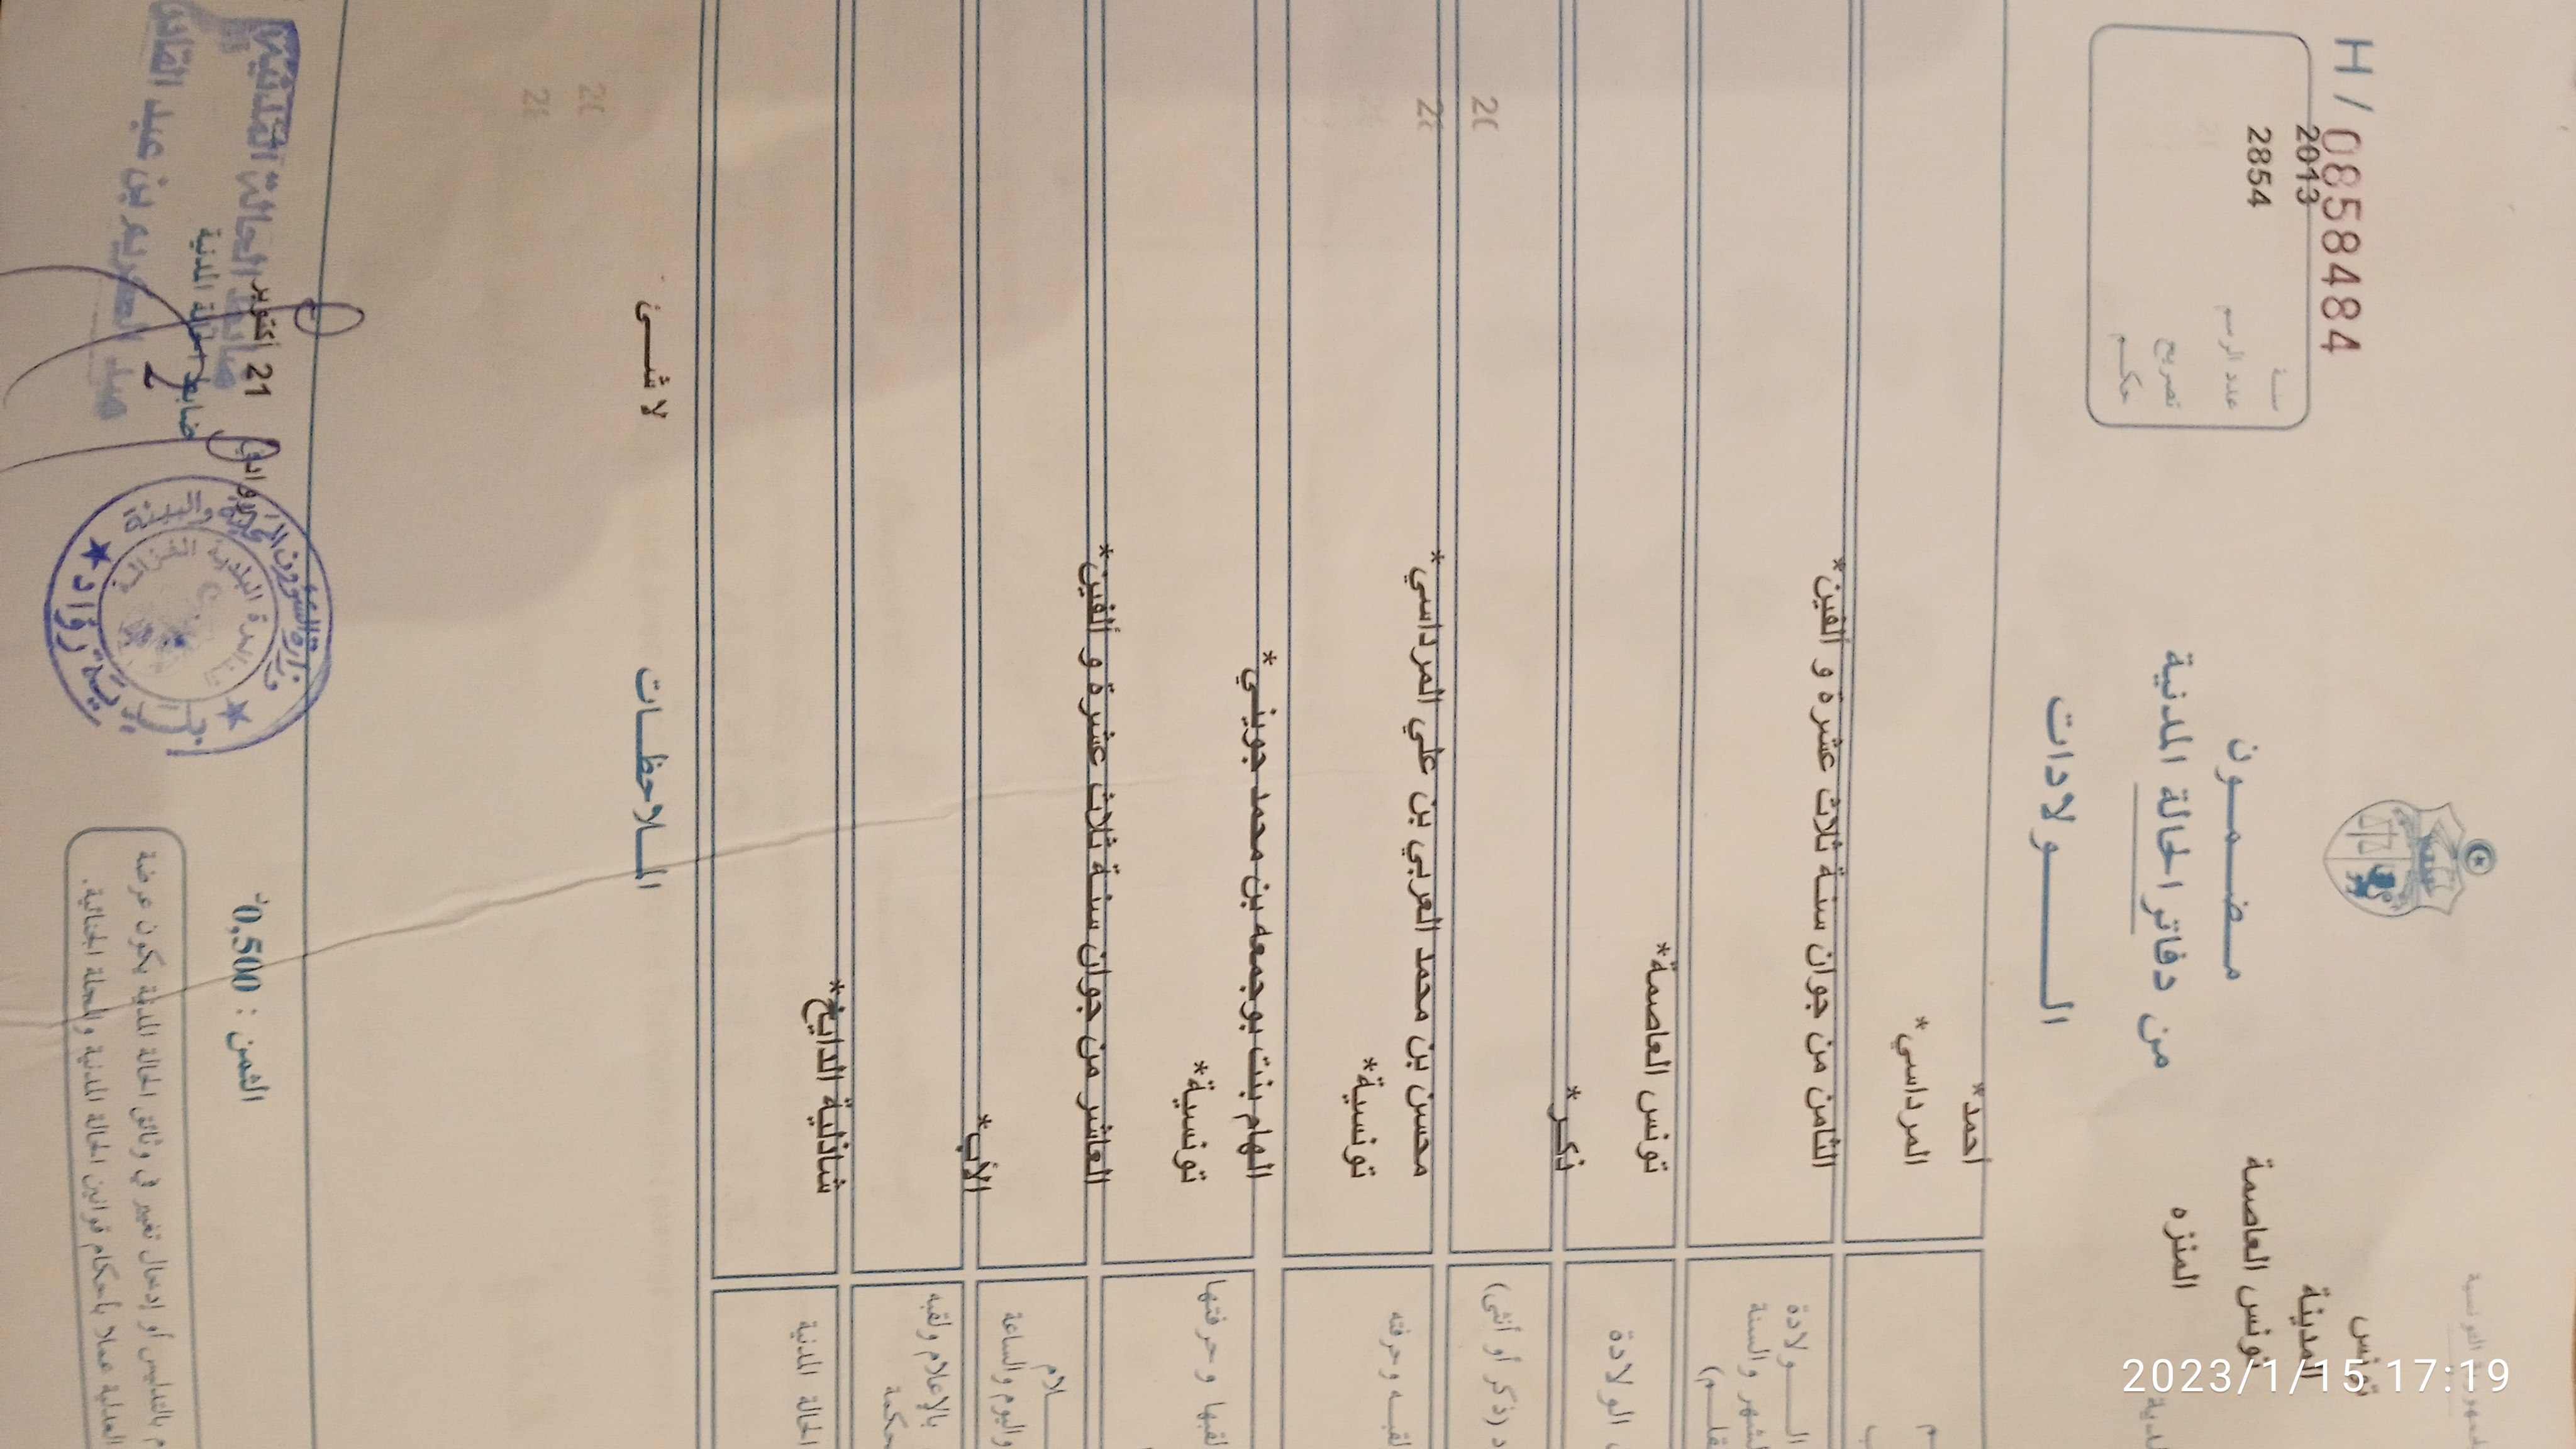 H / 08584484
2013
2854
سنة
عدد الرسم
تصريح
حكم
تونس
المدينة
تونس العاصمة
المنزه
مضمون
من دفاتر الحالة المدنية
الولادات
أحمد*
المرداسي*
الثامن من جوان سنة ثلاث عشرة و ألفين*
الولادة
والسنة
تونس العاصمة*
الولادة
ذكر*
(ذكر أو أنثى)
محسن بن محمد العربي بن علي المرداسي*
تونسية*
لقبه وحرفته
الهام بنت بوجمعه بن محمد جويني*
تونسية*
لقبها وحرفتها
العاشر من جوان سنة ثلاث عشرة و ألفين*
واليوم والساعة
الأب*
بالإعلام ولقبه
شاذلية الدايخ*
الحالة المدنية
الملاحظات
لا شئ
رواد في
21 أكتوبر
ضابط الحالة المدنية
وزارة الشؤون المحلية والبيئة
بلدية رواد
الثمن : 0,500د
بالتدليس أو إدخال تغيير في وثائق الحالة المدنية يكون عرضة
العدلية عملا بأحكام قوانين الحالة المدنية والمجلة الجنائية.
2023/1/15 17:19